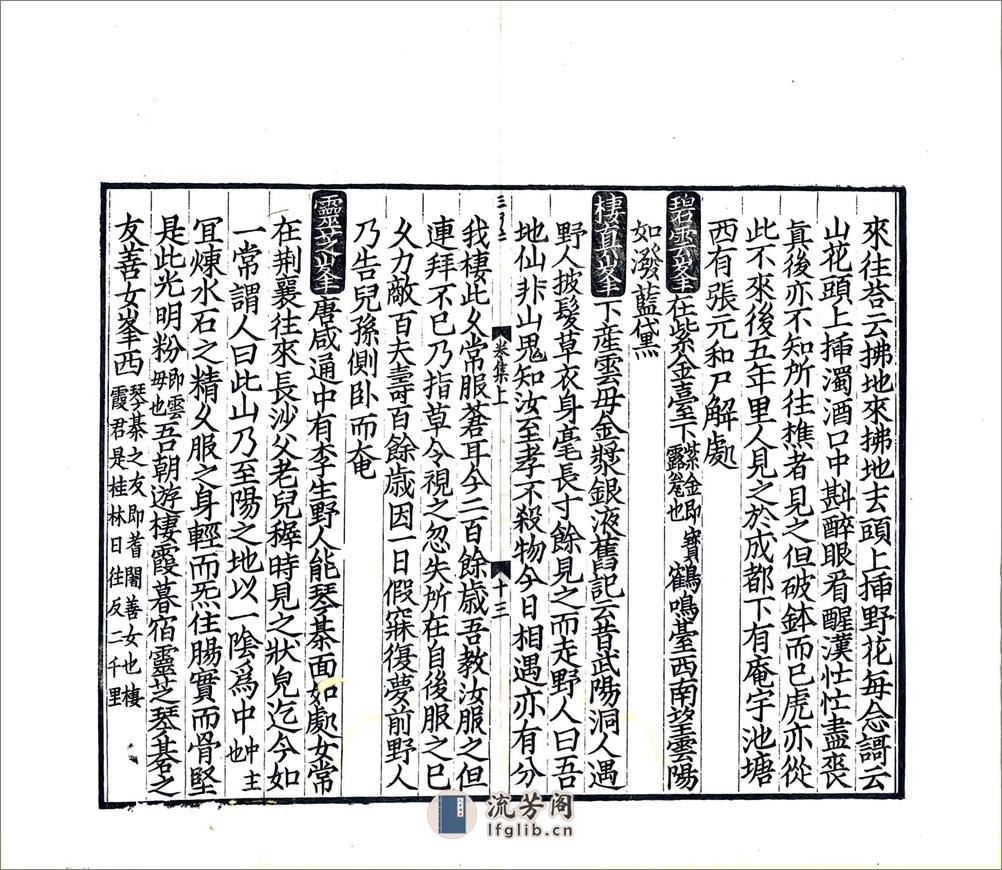 來往荅云拂地來拂地去頭上揷野花毎念謌云
山花頭上揷濁酒口中斟醉眼看醒漢忙忙盡喪
眞後亦不知所往樵者見之但破鉢而已虎亦從
此不來後五年里人見之於成都下有庵宇池塘
西有張元和尸解處
碧雲峯在紫金臺下紫金即露巹也寳鶴鳴臺西南望雲陽
如潑藍黛
棲眞峯下産雲毋金漿銀液舊記云昔武陽洞人遇
野人披髮草衣身毫長寸餘見之而走野人曰吾
地仙非山鬼知汝至孝不殺物今日相遇亦有分
三百二
卷集上
十三
我棲此乆常服蒼耳今二百餘歳吾教汝服之但
連拜不已乃指草令視之忽失所在自後服之已
乆力敵百夫壽百餘歳因一日假寐復夢前野人
乃告兒孫側卧而奄
靈芝峯唐咸通中有李生野人能琴棊面如處女常
在荆襄往來長沙父老兒稺時見之狀皃迄今如
一常謂人曰此山乃至陽之地以一陰爲中中主也
冝煉水石之精乆服之身輕而炁住腸實而骨堅
是此光明粉即雲毋也吾朝遊棲霞暮宿靈芝琴棊之
友善女峯西琴棊之友即耆闍善女也棲霞君是桂林日往反二千里
流芳阁
lfglib.cn